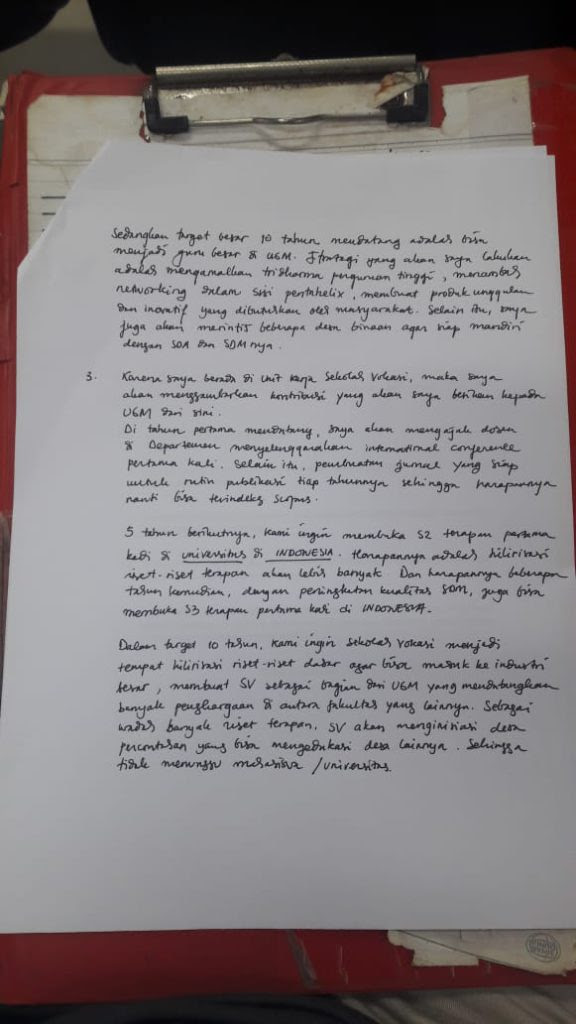 Sedangkan target besar 10 tahun mendatang adalah bisa
menjadi guru besar di UGM. Strategi yang akan saya lakukan
adalah mengamalkan tridharma perguruan tinggi, menambah
networking dalam sisi pentahelix, membuat produk unggulan
dan inovatif yang dibutuhkan oleh masyarakat. Selain itu, saya
juga akan merintis beberapa desa binaan agar siap mandiri
dengan SDA dan SDM nya.
3. Karena saya berada di Unit Kerja Sekolah Vokasi, maka saya
akan menggambarkan kontribusi yang akan saya berikan kepada
UGM dari sini.
Di tahun pertama mendatang, saya akan mengajak dosen
di Departemen menyelenggarakan international conference
pertama kali. Selain itu, pembuatan jurnal yang siap
untuk rutin publikasi tiap tahunnya sehingga harapannya
nanti bisa terindeks scopus.
5 tahun berikutnya, kami ingin membuka S2 terapan pertama
kali di universitas di INDONESIA. Harapannya adalah hilirisasi
riset-riset terapan akan lebih banyak. Dan harapannya beberapa
tahun kemudian, dengan peningkatan kualitas SDM, juga bisa
membuka S3 terapan pertama kali di INDONESIA.
Dalam target 10 tahun, kami ingin sekolah vokasi menjadi
tempat hilirisasi riset-riset dasar agar bisa masuk ke industri
besar, membuat SV sebagai bagian dari UGM yang mendatangkan
banyak penghargaan di antara fakultas yang lainnya. Sebagai
wadah banyak riset terapan, SV akan menginisiasi desa
percontohan yang bisa mengedukasi desa lainnya. Sehingga
tidak menunggu mahasiswa /universitas.